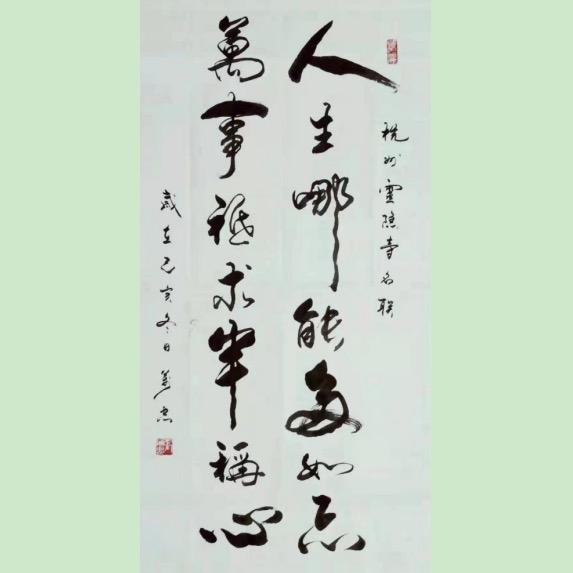 杭州靈隐寺名联
人生哪能多如意
萬事祗求半稱心
歲在己亥冬日